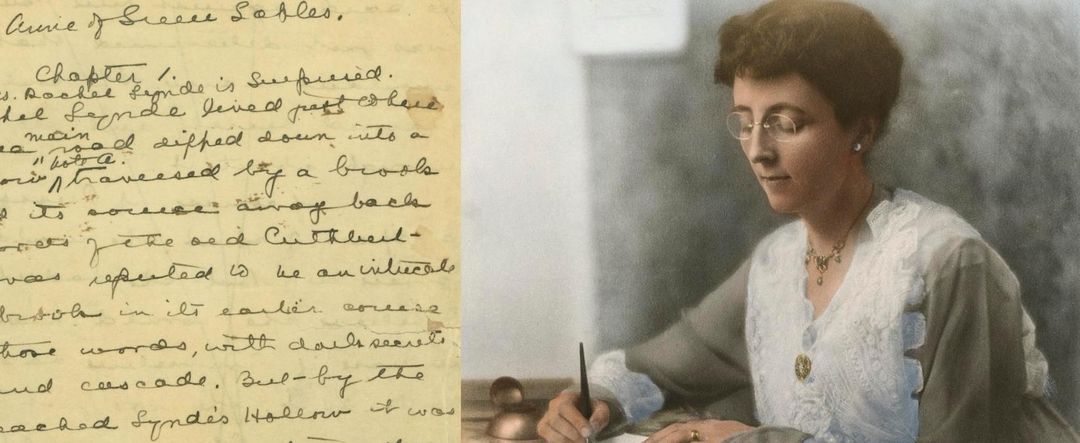 Anne of Green Gables.
Chapter 1.
s. Rachel Lynde is Surprised.
hel Lynde lived just where
main
road dipped down into a
"Note A".
traversed by a brook
its source away back
of the old Cuthbert
was reputed to be an intricate
brook in its earlier course
those words, with dark secrets
and cascade. But by the
eached Lynde's Hollow it was